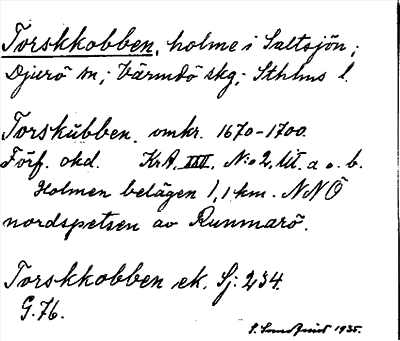 Torskkobben, holme i Saltsjön;
Djurö sn; Värmdö skg; Sthlms l.
Torskubben. omkr. 1670-1700.
Förf. okd. KrA, III, N:o 2, lit. a o. b.
Holmen belägen 1,1 km. NNÖ
nordspetsen av Runmarö.
Torskkobben ek. Sj: 234.
G.76.
S. 1935.